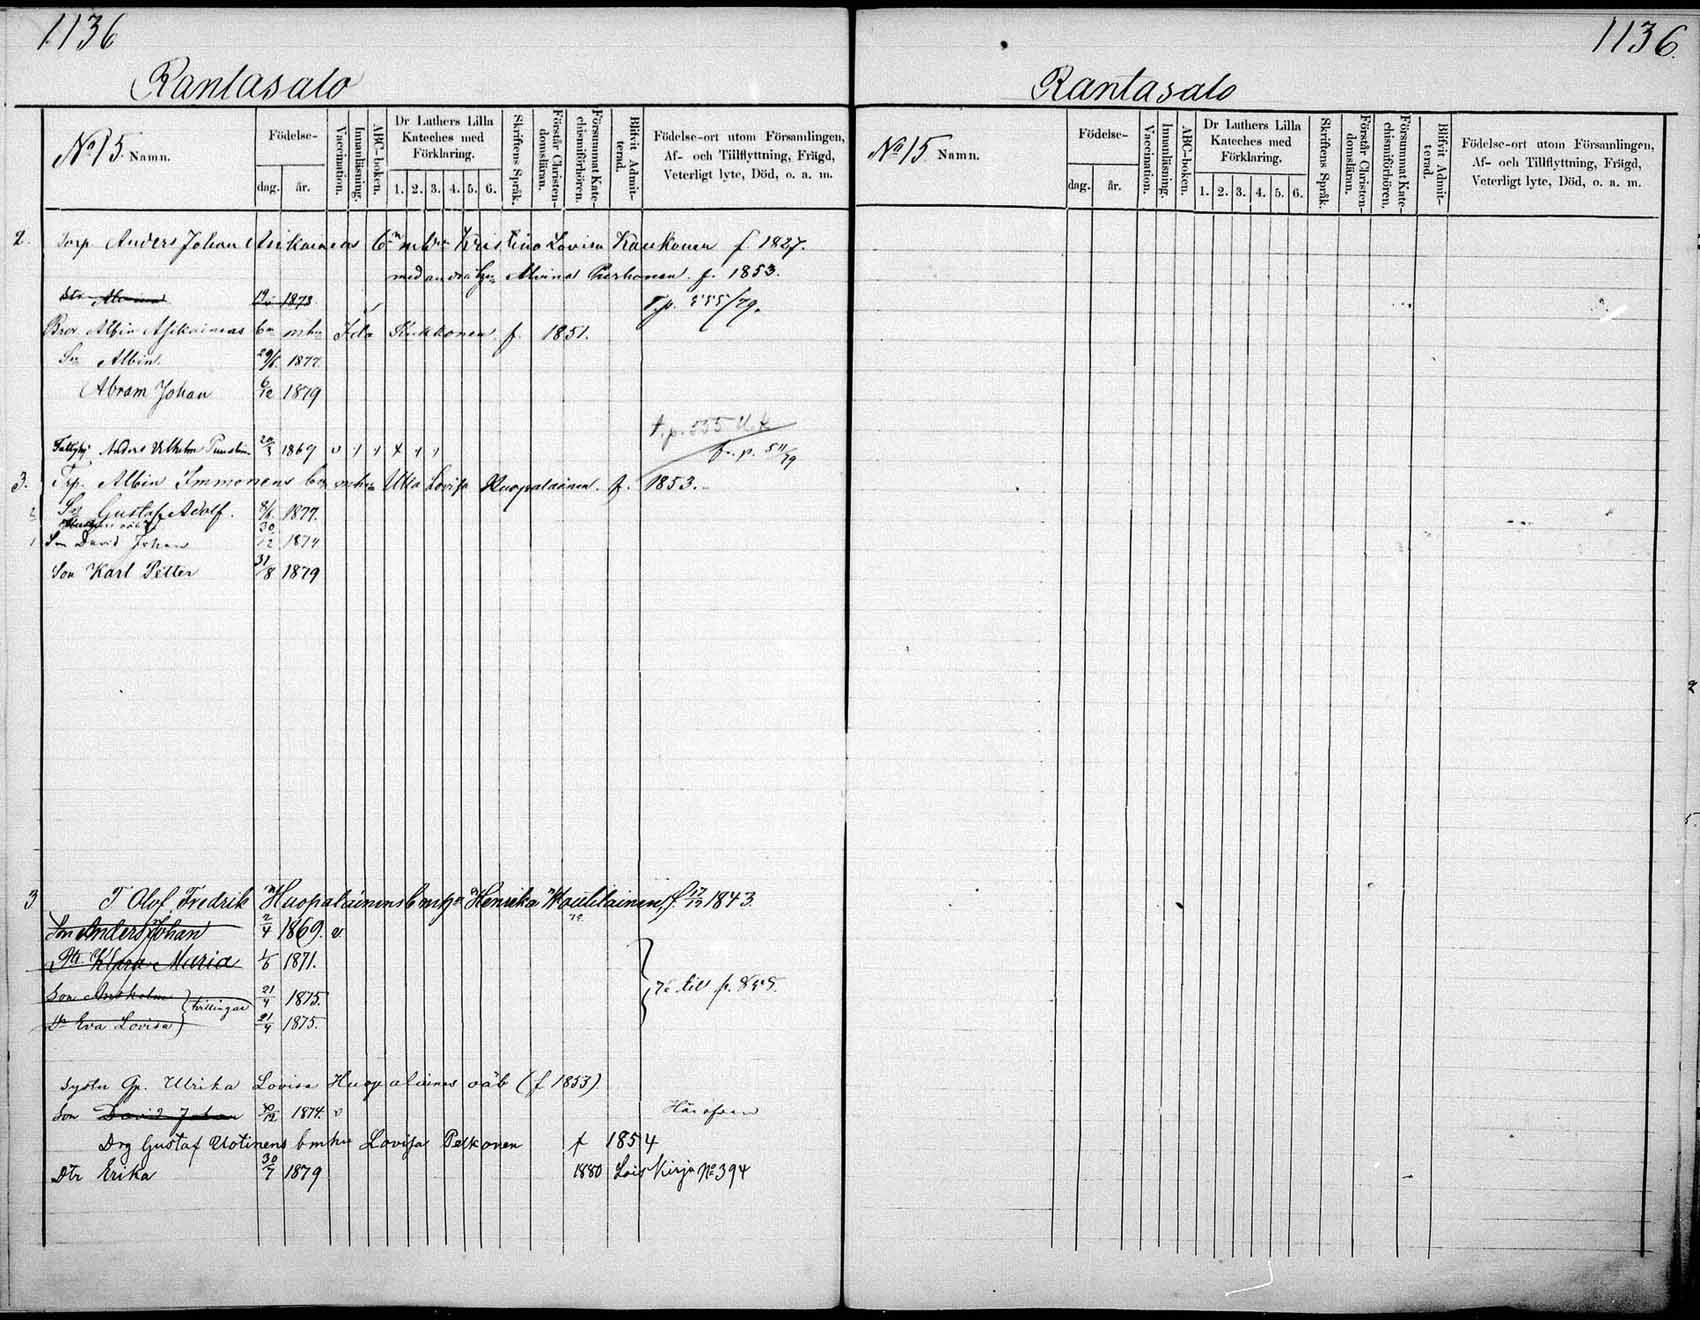 1136
Rantasalo
No 15. Namn.
Födelse-
dag. år.
Vaccination.
Innanläsning.
ABC-boken.
Dr Luthers Lilla Kateches med Förklaring.
1. 2. 3. 4. 5. 6.
Skriftens Språk.
Förstår Christendomsläran.
Försummat Katechismiförhören.
Blifvit Admitterad.
Födelse-ort utom Församlingen, Af- och Tillflyttning, Frägd, Veterligt lyte, Död, o. a. m.
2. Torp. Anders Johan Asikainens Kristina Lovisa Kaukonen f. 1827.
med andra Alvina f. 1853.
1873 T. p. 555/79.
Bror Albin Asikainens Ida Kukkonen f. 1851.
Sn Albin. 1877.
Abram Johan 6/12 1879
Anders Vilhelm 1869 v
3. Trp. Albin Immonens Ulla Lovisa Huopalainen. f. 1853.
Sn Gustaf Adolf. 1877.
1 Son David Johan 30/12 1874
Son Karl Petter 31/8 1879
3 T Olof Fredrik Huopalainens Henrika f. 1843.
Son Anders Johan 2/4 1869. v
Dtr Klara Maria 1871.
Son 21/4 1875. tvillingar
Dr Eva Lovisa 21/4 1875.
till p.
Syster Gp. Ulrika Lovisa Huopalainen oäb (f 1853)
Son David Johan 1874. v Härofvan
Drg Gustaf Uotinens bmhu Lovisa Pelkonen f 1854
Dtr Erika 30/7 1879 1880 Lois Kirja No 394
1136.
Rantasalo
No 15 Namn.
Födelse-
dag. år.
Vaccination.
Innanläsning.
ABC-boken.
Dr Luthers Lilla Kateches med Förklaring.
1. 2. 3. 4. 5. 6.
Skriftens Språk.
Förstår Christendomsläran.
Försummat Katechismiförhören.
Blifvit Admitterad.
Födelse-ort utom Församlingen, Af- och Tillflyttning, Frägd, Veterligt lyte, Död, o. a. m.